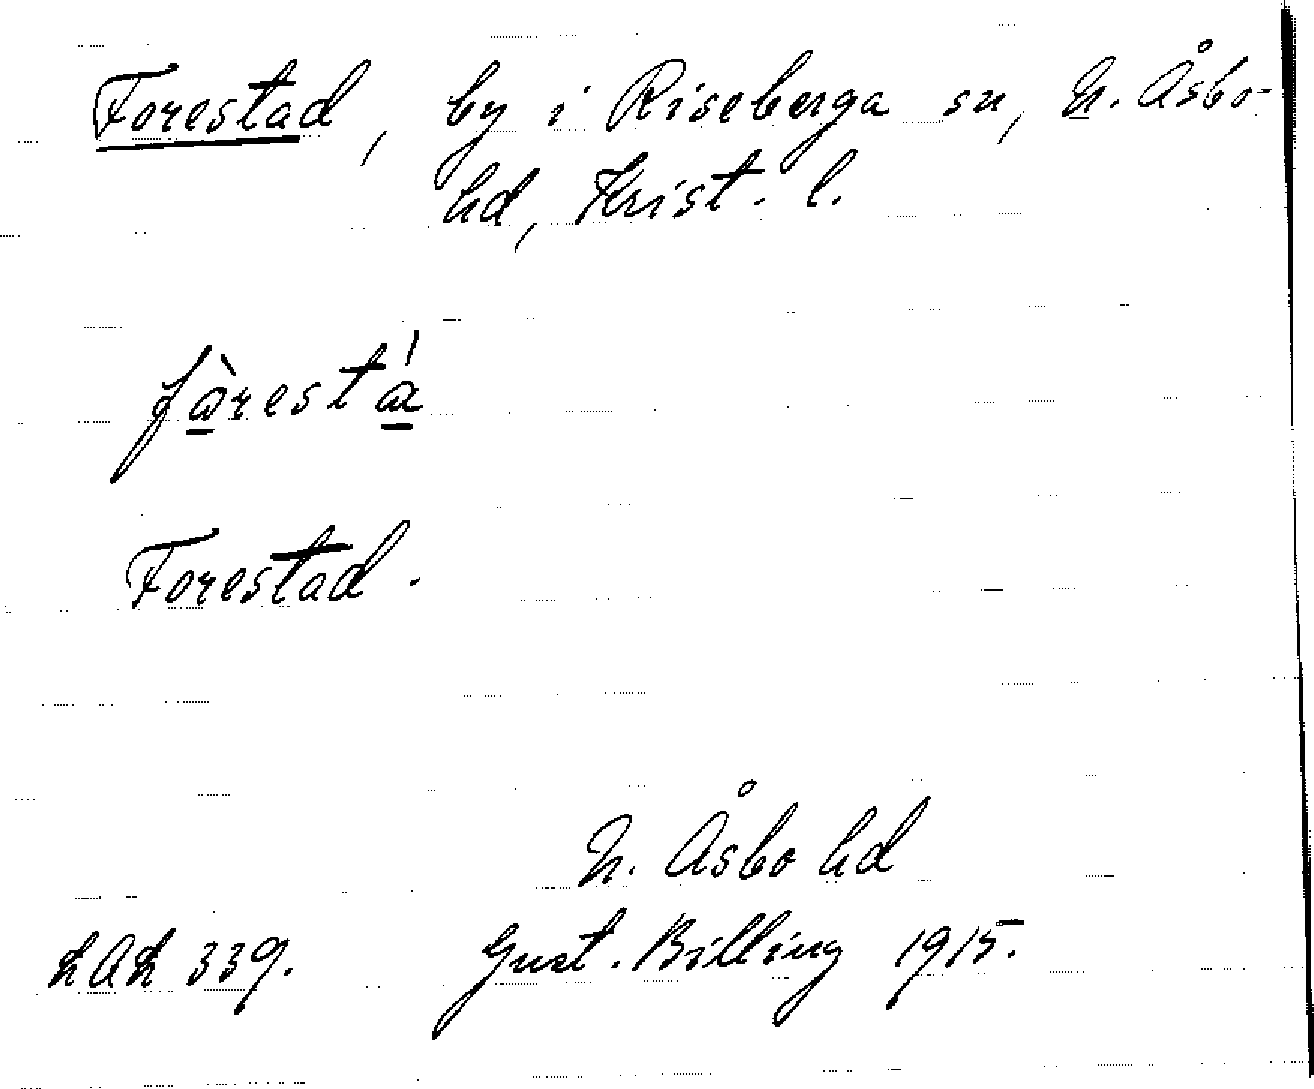 Forestad, by i Riseberga sn, N. Åsbo-
hd, Krist. l.
fàrestá
Forestad.
N. Åsbo hd
LAL 339. Gust. Billing 1915.